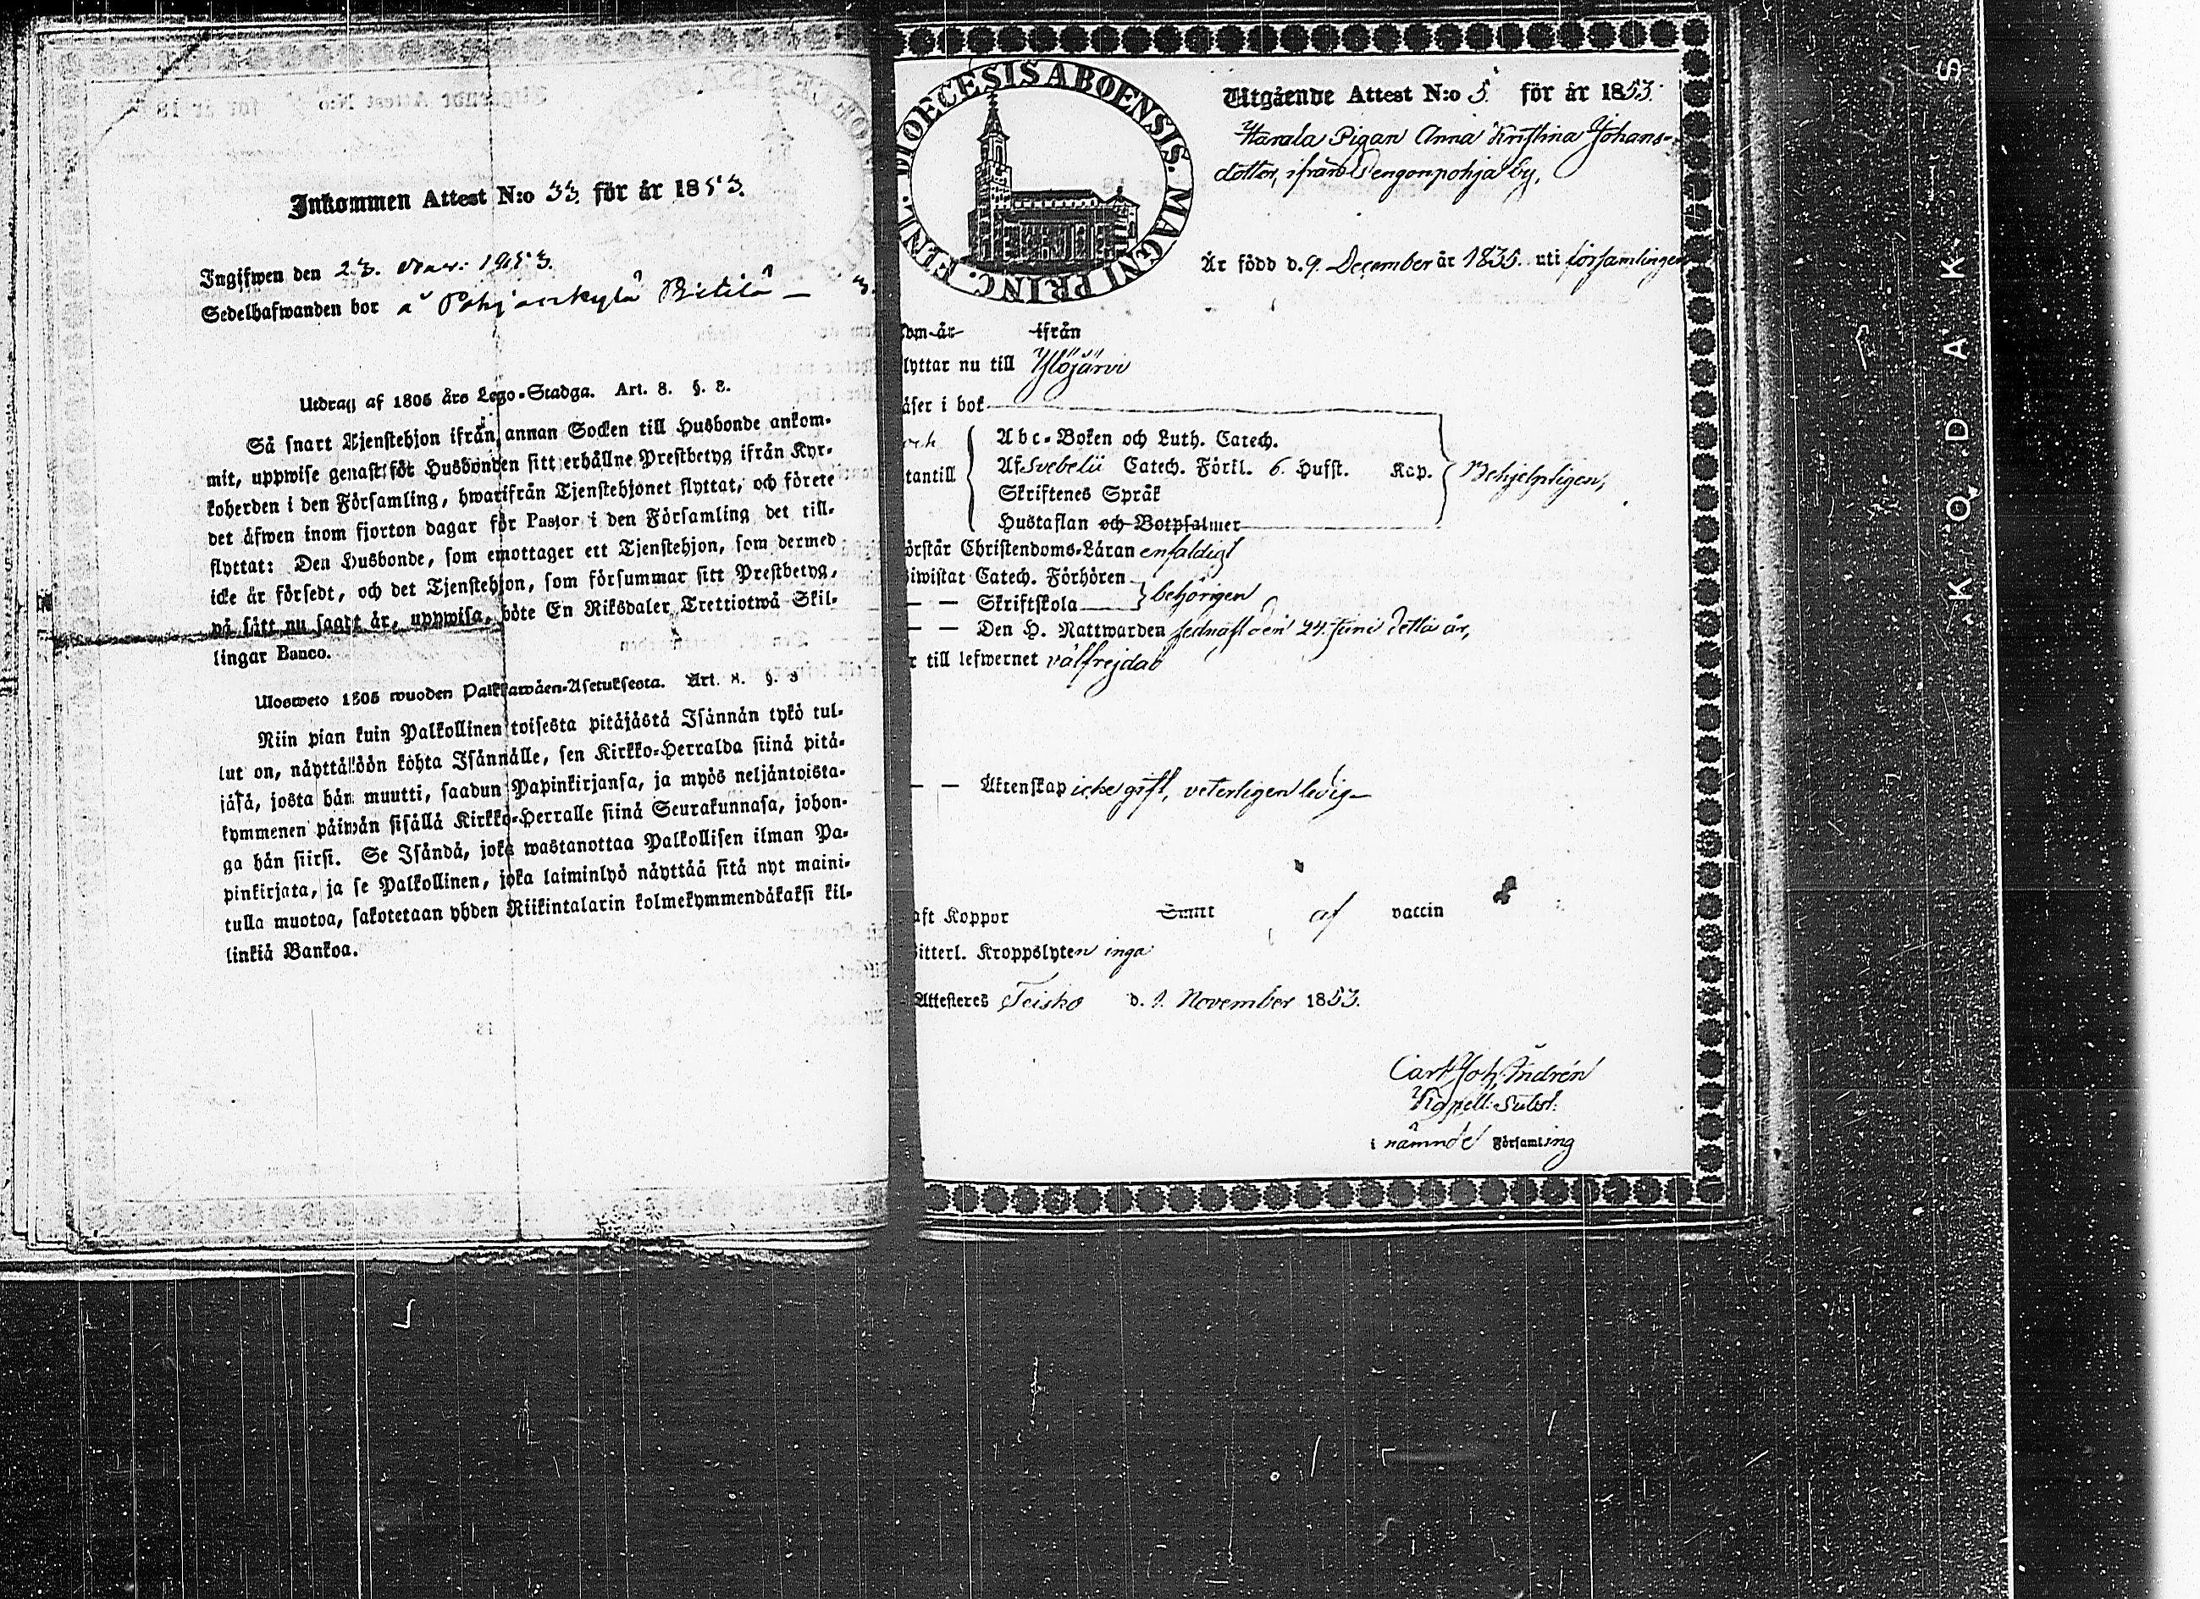 Inkommen Attest N:o 33. för år 1853.
Ingifwen den 23. Nov: 1853.
Sedelhafwanden bor å Pohjankylä
Utdrag af 1805 års Lego-Stadga. Art. 8. §. 8.
Så snart Tjenstehjon ifrån annan Socken till Husbonde ankom-
mit, uppwise genast för Husbonden sitt erhållne Prestbetyg ifrån Kyr-
koherden i den Församling, hwarifrån Tjenstehjonet flyttat, och förete
det äfwen inom fjorton dagar för Pastor i den Församling det till-
flyttat: Den Husbonde, som emottager ett Tjenstehjon, som dermed
icke är försedt, och det Tjenstehjon, som försummar sitt Prestbetyg,
på sätt nu sagdt är, uppwisa, böte En Riksdaler Trettiotwå Skil-
lingar Banco.
Ulosweto 1805 wuoden Palkkawäen-Asetuksesta. Art. 8. §. 8
Niin pian kuin Palkollinen toisesta pitäjästä Isännän tykö tul-
lut on, näyttäköön kohta Isännälle, sen Kirkko-Herralda siinä pitä-
jäsä, josta hän muutti, saadun Papinkirjansa, ja myös neljäntoista-
kymmenen päiwän sisällä Kirkko-Herralle siinä Seurakunnasa, johon-
ga hän siirsi. Se Isändä, joka wastanottaa Palkollisen ilman Pa-
pinkirjata, ja se Palkollinen, joka laiminlyö näyttää sitä nyt maini-
tulla muotoa, sakotetaan yhden Riikintalarin kolmekymmendäkaksi kil-
linkiä Bankoa.
DIOECESIS ABOENSIS. MAGNI PRINC. FINL.
Utgående Attest N:o 5. för år 1853.
Harala Pigan Anna Kristina Johans-
dotter, ifrån Pengonpohja by,
Är född d. 9. December år 1835. uti församlingen
kom år ifrån
lyttar nu till Ylöjärvi
äser i bok
och Abc-Boken och Luth. Catech.
tantill Af Svebelii Catech. Förkl. 6. Husst. Kap. Behjelpligen,
Skriftenes Språk
Hustaflan och Botpsalmer
örstår Christendoms-Läran enfaldigt
iwistat Catech. Förhören behörigen
— — Skriftskola
— — Den H. Nattwarden sednast den 24. Juni detta år,
r till lefwernet välfrejdad
— — Äktenskap icke gift, veterligen ledig
aft Koppor Smitt af vaccin
itterl. Kroppslyten inga
Attesteres Teisko d. 9. November 1853.
Carl Joh. Andrén
Kapell: Subst:
i nämnde Församling
KODAK S